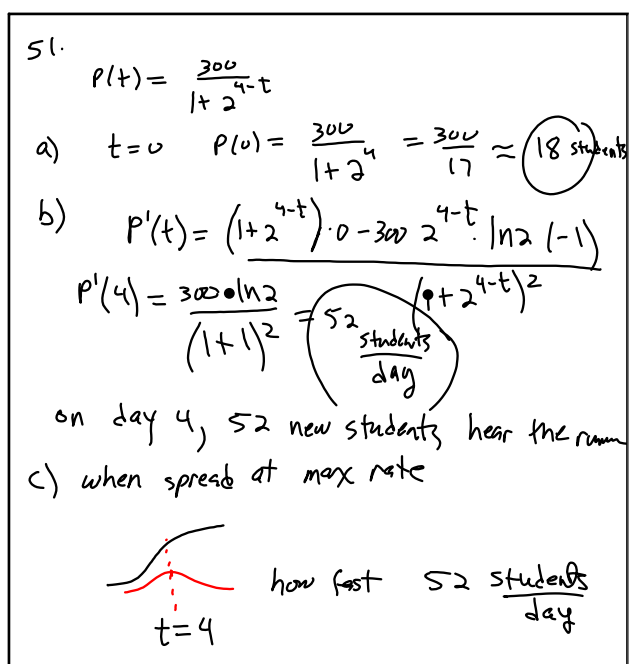 51.
P(t) = 300 / (1 + 2^(4-t))
a) t = 0 P(0) = 300 / (1 + 2^4) = 300/17 ≈ 18 students
b) P'(t) = ((1 + 2^(4-t)) · 0 - 300 2^(4-t) · ln2 (-1)) / (1 + 2^(4-t))^2
P'(4) = 300 · ln2 / (1+1)^2 = 52 students/day
on day 4, 52 new students hear the
c) when spread at max rate
how fast 52 students/day
t = 4